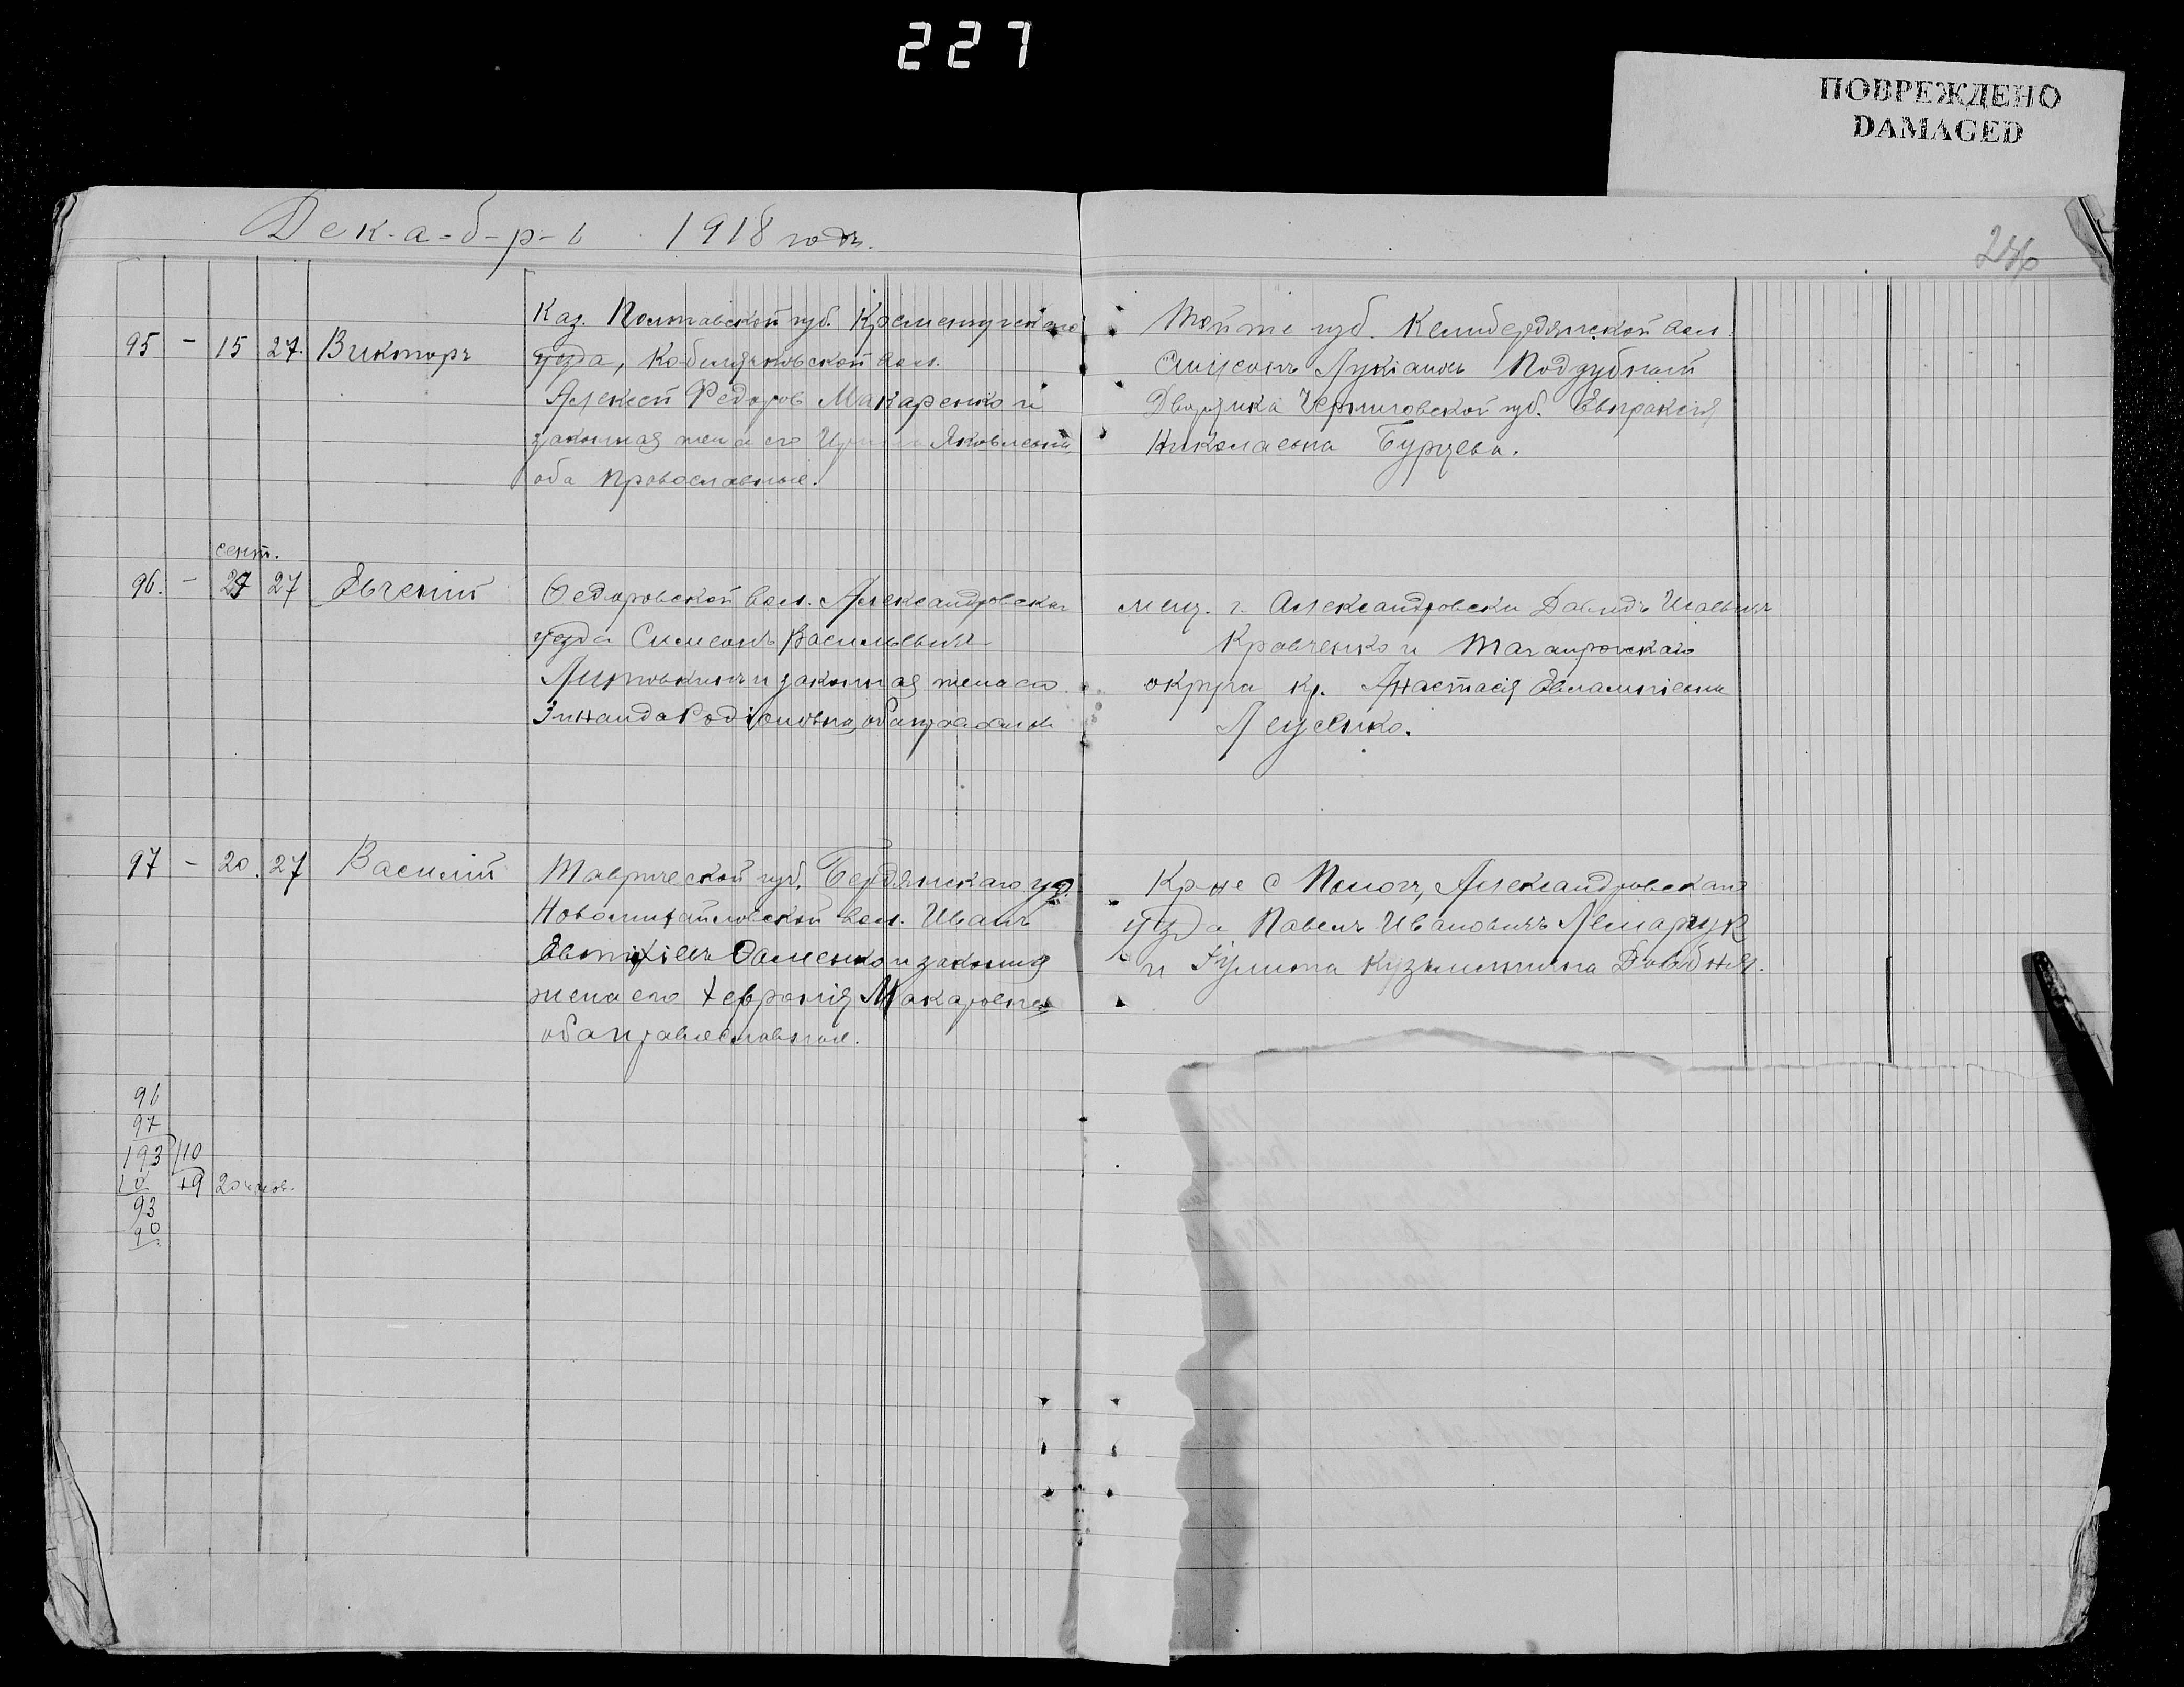 227
ПОВРЕЖДЕНО
DAMAGED
Дек-а-б-р-ь 1918 годъ.
246
95 - 15 27. Викторъ
Каз. Полтавской губ. Кременчугскаго
уѣзда, Кобелякской вол.
Алексей Федоров Макаренко и
законная жена его Ирина Яковлевна,
оба православные.
Той же губ. Келебердянской вол.
Симеонъ Лукіановъ Поддубный
Дворянка Черниговской губ. Евпраксія
Николаевна Бурцева.
сент.
96. - 27 Евгеній
Федоровской вол. Александровскаго
уѣзда Симеонъ Васильевичъ
и законная жена его
Зинаида Родіоновна, оба
мещ. г. Александровска Давидъ
Кравченко и Таганрогскаго
округа кр. Анастасія Евлампіевна
97 - 20. 27 Василій
Таврической губ. Бердянскаго уѣ.
Новомихайловской вол. Иванъ
и законная
жена его Хевронія Макаровна
оба православные.
Кр-не с Пологъ, Александровскаго
уѣзда Павелъ Ивановичъ
и Кузьминична
96
97
193 110
10 +9 20
93
90